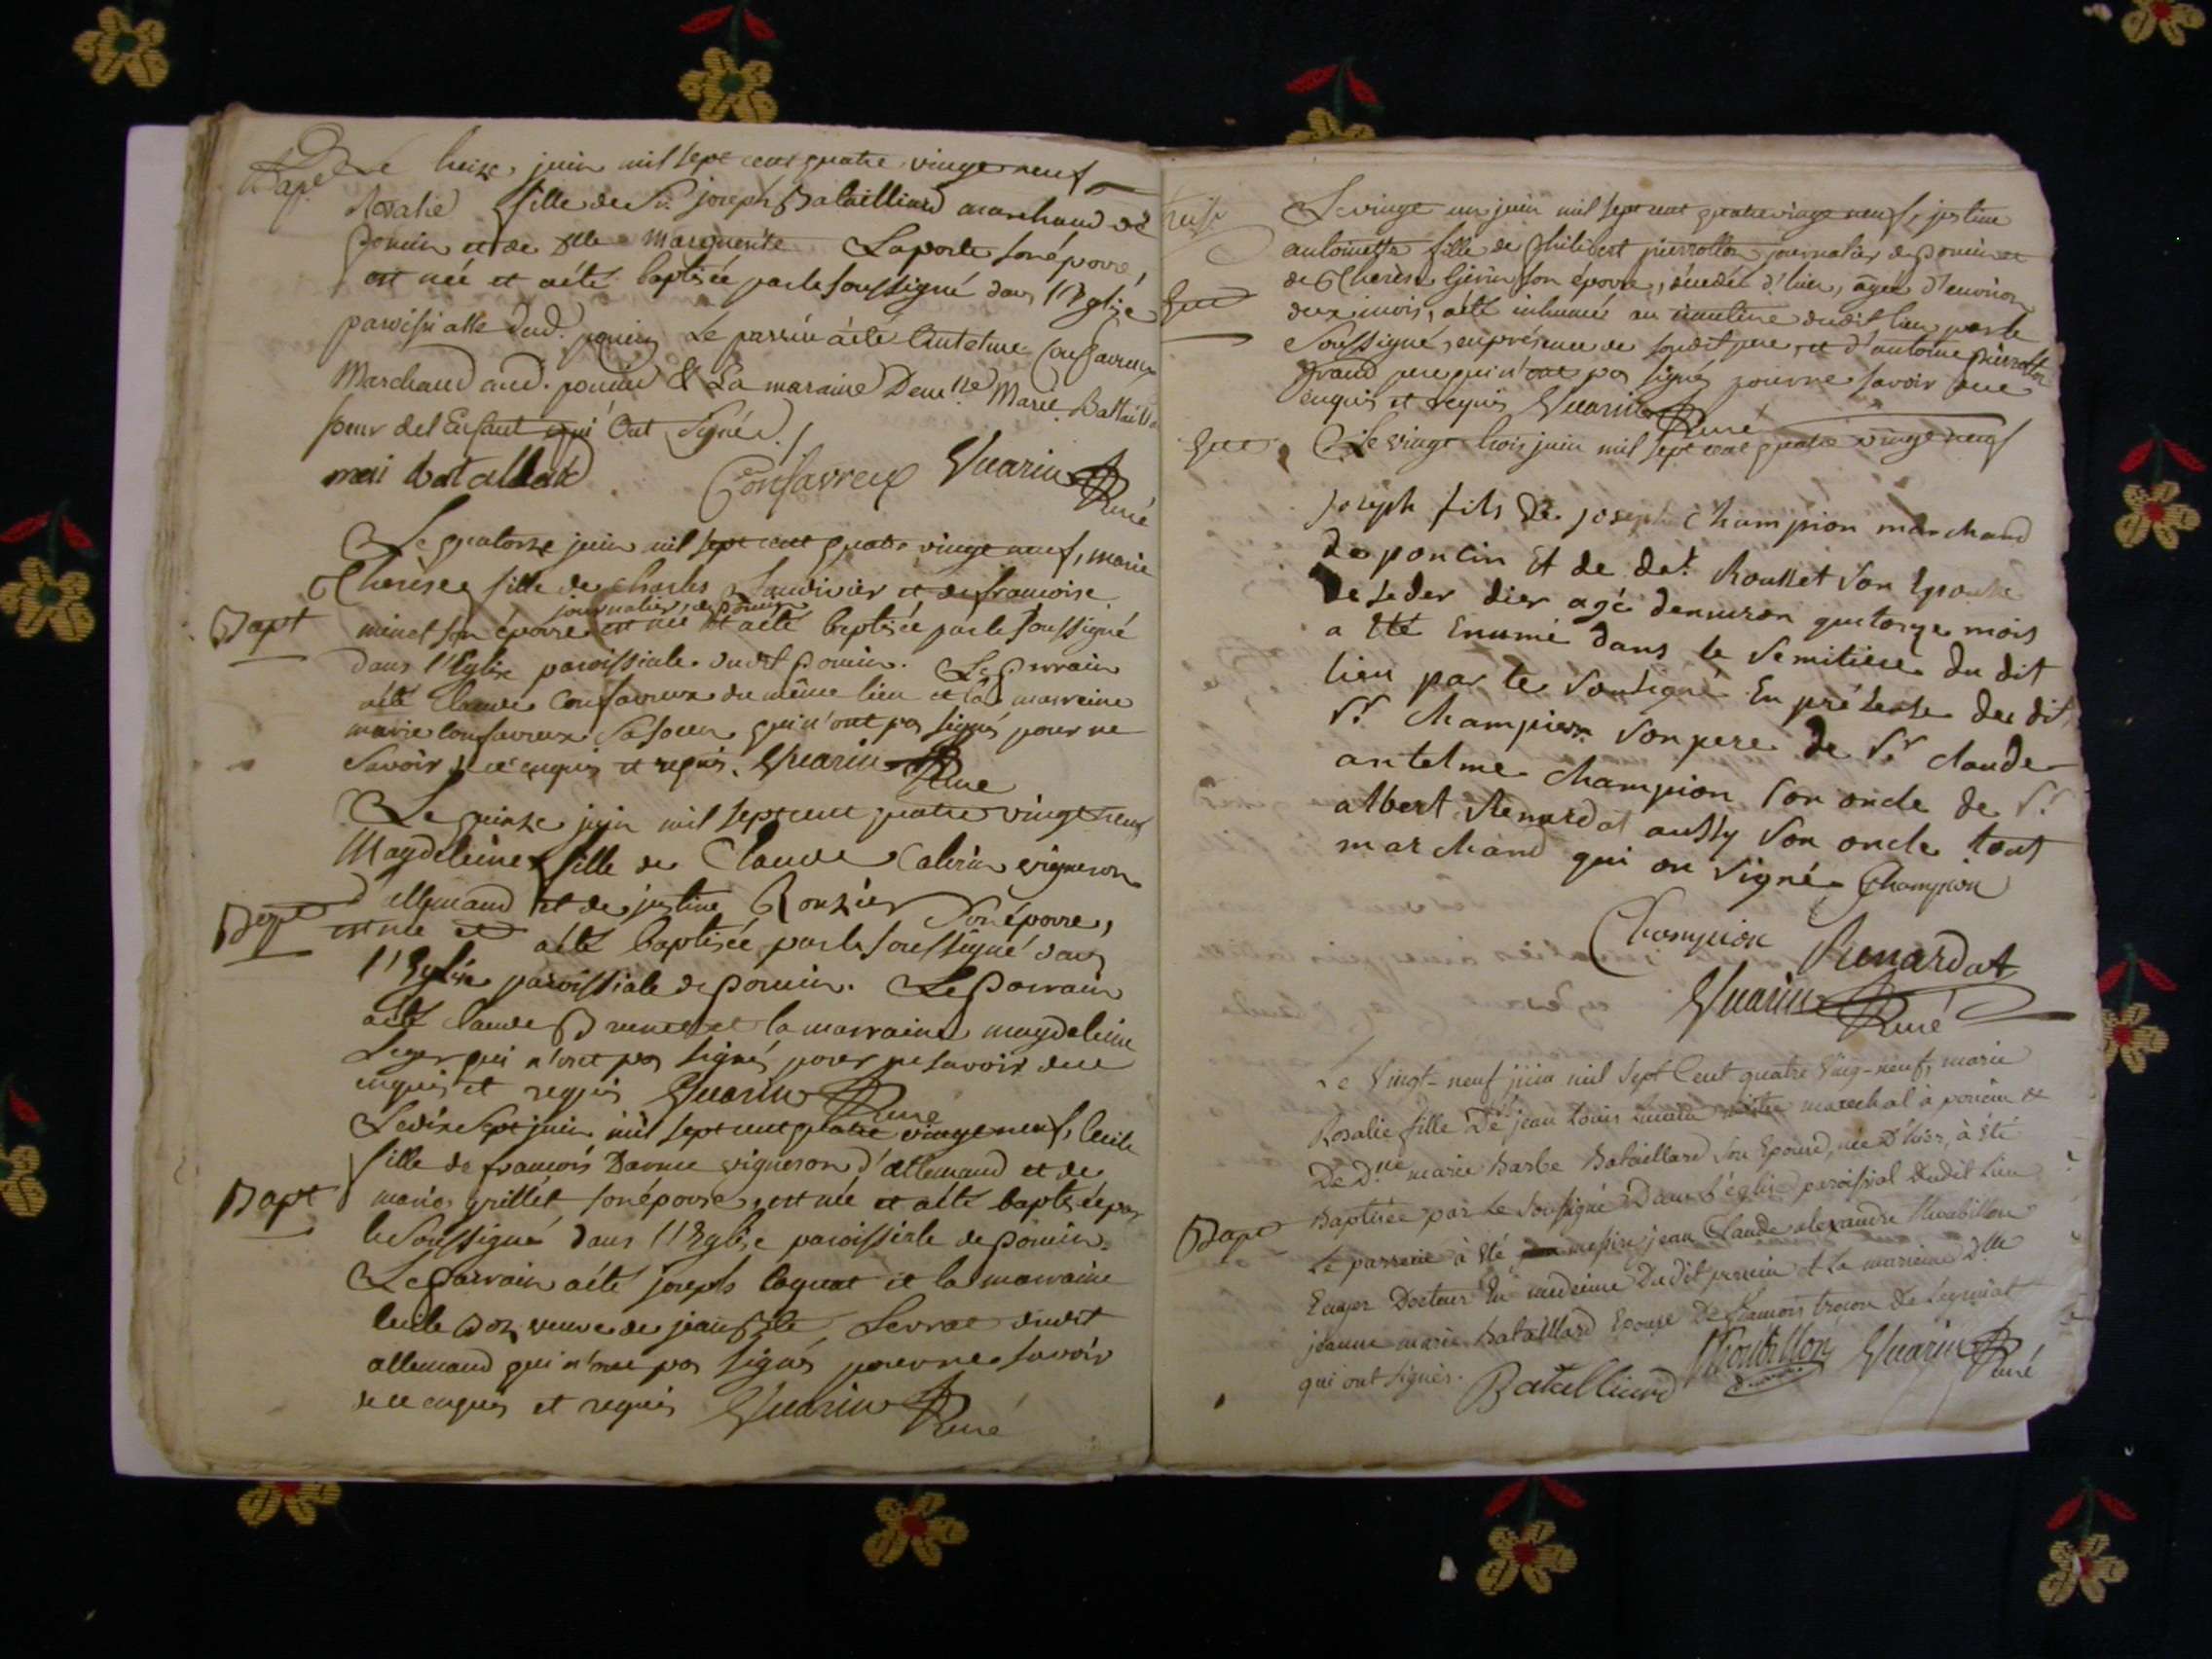 Bapt
Le treize juin mil sept cent quatre vingt neuf
Rosalie fille de Sr. joseph Bataillard marchand de
poncin et de Dlle Marguerite Laporte son épouse,
est née et a été baptisée par le soussigné dans l'Eglise
paroissialle dud. poncin Le parrin a été Antelme Confavreux
Marchand aud. poncin & La maraine Demlle Marie Battailla
soeur de l'Enfant qui Ont Signé.
mari batallard Confavreux Guarin Curé
Le quatorze juin mil sept cent quatre vingt neuf, marie
Therèse fille de charles Laudivier et de francoise
journalier de poncin
Bapt
minet son épouse est née et a été baptisée par le soussigné
dans l'Eglise paroissiale dudit poncin. Le parrain
a été Claude Confavreux du même lieu et la marreine
marie Confavreux sa soeur qui n'ont pas signés pour ne
savoir de ce enquis et requis. Guarin Curé
Le quinze juin mil sept cent quatre vingt neuf
Magdeleine fille de Claude Caterin vigneron
d'allemand et de justine Ronzier son épouse,
Bapt
est née et a été baptisée par le soussigné dans
l'Eglise paroissiale de poncin. Le parrain
a été claude Brunet et la marraine magdeleine
Leger qui n'ont pas signés pour ne savoir de ce
enquis et requis Guarin Curé
Le dix sept juin mil sept cent quatre vingt neuf, Cecile
fille de francois Darme vigneron d'allemand et de
Bapt
marie grillet son épouse, est née et a été baptisée par
le soussigné dans l'Eglise paroissiale de poncin.
Le parrain a été joseph loquat et la marraine
Cecile Boz veuve de jean Bte Levrat dudit
allemand qui n'ont pas signés pour ne savoir
de ce enquis et requis Guarin Curé
Le vingt un juin mil sept cent quatre vingt neuf, justine
antoinette fille de Philibert pierrotton journalier de poncin et
de Therèse Gerin son épouse, décédée d'hier, âgée d'environ
deux mois, a été inhumée au cimetière dudit lieu par le
soussigné, en présence de sondit pere, et d'antoine pierrotton
grand pere qui n'ont pas signés pour ne savoir de ce
enquis et requis Guarin Curé
Le vingt trois juin mil sept cent quatre vingt neuf
joseph fils de joseph champion marchand
de poncin Et de det. Rousset son Epouse
deseder dier agé denviron quatorze mois
a Eté Enumé dans le semitiere du dit
lieu par le soutsigné En présense du dit
Sr champion son pere de Sr claude
antelme champion son oncle de Sr.
albert Renardat aussy son oncle tout
marchand qui on signé Champion
Champion Renardat
Guarin Curé
Le Vingt-neuf juin mil Sept Cent quatre Ving-neuf, marie
Rosalie fille De jean Louis marechal à poncin et
De Dme marie Barbe Bataillard son Epouse, née D'hier, à Eté
Bapt
Baptisée par Le Soussigné Dans l'église paroissial Dudit Lieu
Le parrein à Eté messire jean Claude alexandre
Ecuyer Docteur En medeine Dudit poncin et La mareine Dlle
jeanne marie Bataillard Epouse De francois De Leymiat
qui ont signés. Batailliard Guarin Curé